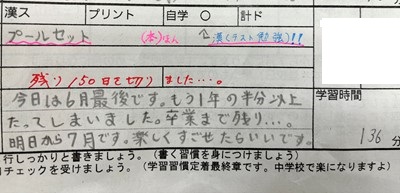 漢ス プリント 自学 ○ 計ド
プールセット (本)ほん ↑漢(テスト勉強)!!
残り150日を切りました…。
今日は6月最後です。もう1年の半分以上
たってしまいました。卒業まで残り…。
明日から7月です。楽しくすごせたらいいです。
学習時間
136分
行しっかりと書きましょう。(書く習慣を身につけましょう)
チェックを受けましょう。(学習習慣定着最終章です。中学校で楽になりますよ)